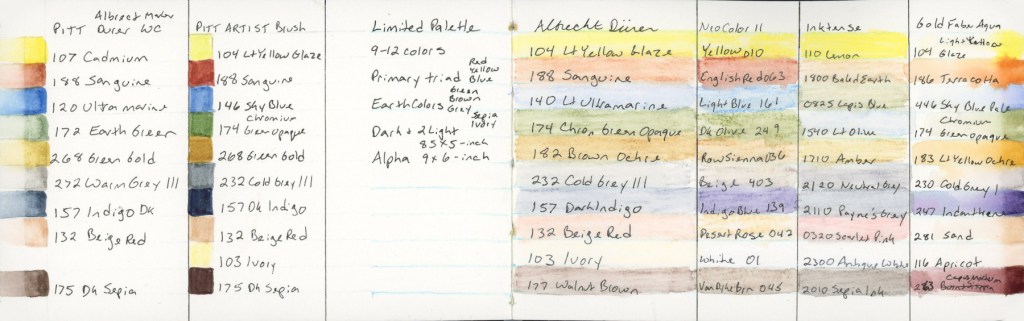 PITT Albrecht Marker
Durer WC
107 Cadmium
188 Sanguine
120 Ultramarine
172 Earth Green
268 Green Gold
272 Warm Grey III
157 Indigo DK
132 Beige Red
175 Dk Sepia
PITT ARTIST Brush
104 Lt Yellow Glaze
188 Sanguine
146 Sky Blue
Chromium
174 Green Opaque
268 Green Gold
232 Cold Grey III
157 Dk Indigo
132 Beige Red
103 Ivory
175 Dk Sepia
Limited Palette
9-12 colors
Primary triad Red
Yellow
Blue
Earth Colors Green
Brown
Grey
Sepia
Ivory
Dark + 2 Light
8.5 x 5-inch
Alpha 9 x 6-inch
Albrecht Dürer
104 Lt Yellow Glaze
188 Sanguine
140 Lt Ultramarine
174 Chrom Green Opaque
182 Brown Ochre
232 Cold Grey III
157 Dark Indigo
132 Beige Red
103 Ivory
177 Walnut Brown
NeoColor II
Yellow 010
English Red 063
Light Blue 161
Dk Olive 249
Raw Sienna 036
Beige 403
Indigo Blue 139
Desert Rose 042
White 01
VanDykeBrn 046
Inktense
110 Lemon
1800 Baked Earth
0825 Lapis Blue
1540 Lt Olive
1710 Amber
2120 Neutral Grey
2110 Payne's Grey
0320 Scarlet Pink
2300 Antique White
2010 Sepia Ink
Gold Faber Aqua
Light Yellow
104 Glaze
186 Terracotta
446 Sky Blue Pale
Chromium
174 Green Opaque
183 Lt Yellow Ochre
230 Cold Grey I
247 Indanthrene
281 Sand
116 Apricot
263